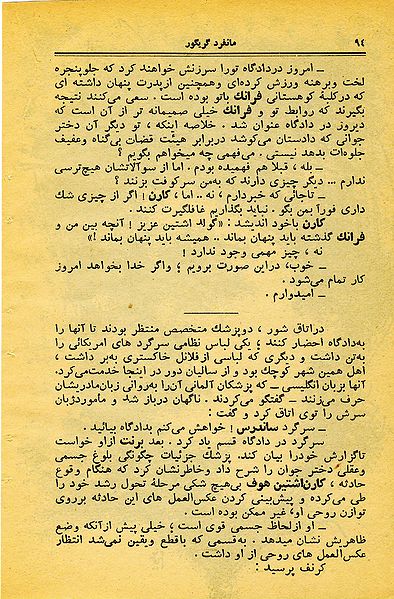 ۹٤ مانفرد گریگور
ــ امروز دردادگاه تورا سرزنش خواهند کرد که جلوپنجره
لخت وبرهنه ورزش کرده‌ای وهمچنین ازپدرت پنهان داشته ای
که درکلبهٔ کوهستانی فرانك باتو بوده است . سعی می‌کنند نتیجه
بگیرند که روابط تو و فرانك خیلی صمیمانه تر از آن است که
دیروز در دادگاه عنوان شد . خلاصه اینکه ، تو دیگر آن دختر
جوانی که دادستان می‌کوشد دربرابر هیئت قضات بی‌گناه وعفیف
جلوه‌ات بدهد نیستی . می‌فهمی چه میخواهم بگویم ؟
ــ بله ، قبلا هم فهمیده بودم . اما از سوآلاتشان هیچ‌ترسی
ندارم ... دیگر چیزی دارند که به‌من سرکوفت بزنند ؟
ــ تاجائی که خبردارم ، نه .. اما ، کارن ! اگر از چیزی شك
داری فوراً بمن بگو . نباید بگذاریم غافلگیرت کنند .
کارن باخود اندیشد : «گولد اشتین عزیز ! آنچه بین من و
فرانك گذشته باید پنهان بماند .. همیشه باید پنهان بماند !»
نه ، چیز مهمی وجود ندارد !
ــ خوب، دراین صورت برویم ؛ واگر خدا بخواهد امروز
کار تمام می‌شود .
ــ امیدوارم .
دراتاق شور ، دوپزشك متخصص منتظر بودند تا آنها را
به‌دادگاه احضار کنند ؛ یکی لباس نظامی سرگرد های امریکائی را
به‌تن داشت و دیگری که لباسی ازفلانل خاکستری به‌بر داشت ،
اهل همین شهر کوچك بود و از سالیان دور در اینجا خدمت‌می‌کرد.
آنها بزبان انگلیسی ــ که پزشکان آلمانی آن‌را به‌روانی زبان‌مادریشان
حرف می‌زنند ــ گفتگو می‌کردند . ناگهان درباز شد و ماموردژبان
سرش را توی اتاق کرد و گفت :
ــ سرگرد ساندرس ! خواهش می‌کنم بدادگاه بیائید .
سرگرد در دادگاه قسم یاد کرد . بعد برنت ازاو خواست
تاگزارش خودرا بیان کند. پزشك جزئیات چگونگی بلوغ جسمی
وعقلی دختر جوان را شرح داد وخاطرنشان کرد که هنگام وقوع
حادثه ، کارن‌اشتین هوف بی‌هیچ شکی مرحلهٔ تحول رشد خود را
طی می‌کرده و پیش‌بینی کردن عکس‌العمل های این حادثه برروی
توازن روحی او، غیر ممکن بوده است .
ــ او ازلحاظ جسمی قوی است ، خیلی پیش ازآنکه وضع
ظاهریش نشان میدهد . به‌قسمی که باقطع ویقین نمی‌شد انتظار
عکس‌العمل های روحی از او داشت .
کرنف پرسید :